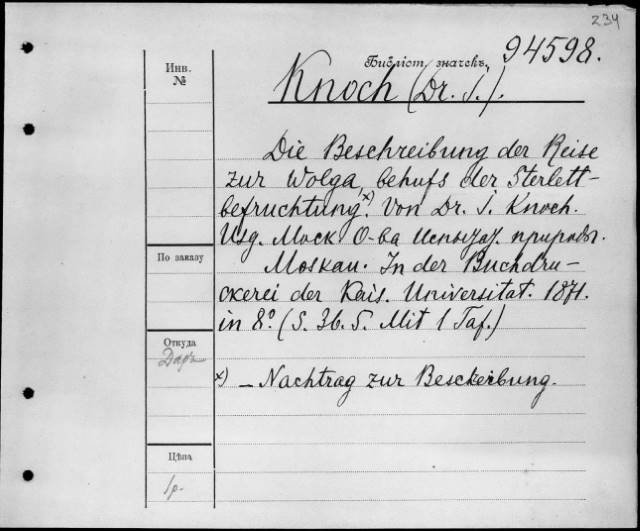 234
Библіот. значекъ. 94598.
Knoch (Dr. J.).
Инв.
№
Die Beschreibung der Reise
zur Wolga, behufs der Sterlett-
befruchtung.x) Von Dr. J. Knoch.
Изд. Моск О-ва Испытат. природы.
По заказу
Moskau. In der Buchdru-
ckerei der Kais. Universitat. 1871.
in 8º. (S. 36. S. Mit 1 Taf.)
Откуда
Даръ
x) – Nachtrag zur Besckeibung.
Цѣна
1р.